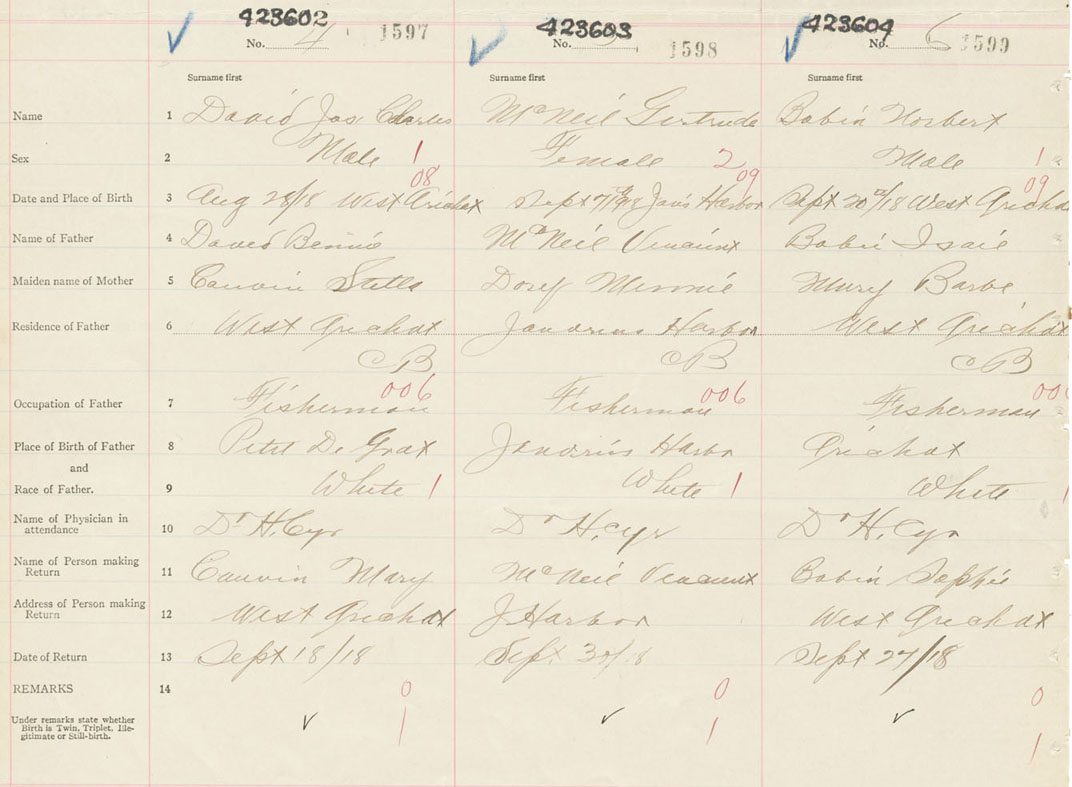 423602 423603 423604
No. 4 1597 No. 5 1598 No. 6 1599
Surname first Surname first Surname first
Name 1 David Jos. Charles McNeil Gertrude Babin Norbert
Sex 2 Male 1 Female 2 Male 1
08 09 09
Date and Place of Birth 3 Aug 28/18 West Arichat Sept Harbor Sept 20/18 West Arichat
Name of Father 4 David Bennie McNeil Vincent Babin Isaie
Maiden name of Mother 5 Cauvin Stella Dorey Minnie Mury Barbe
Residence of Father 6 West Arichat Janvrins Harbor West Arichat
CB CB CB
006 006 006
Occupation of Father 7 Fisherman Fisherman Fisherman
Place of Birth of Father 8 Petit De Grat Janvrins Harbor Arichat
and
Race of Father. 9 White 1 White 1 White 1
Name of Physician in
attendance 10 Dr H. Cyr Dr H. Cyr Dr H. Cyr
Name of Person making
Return 11 Cauvin Mary McNeil Vincent Babin Sophie
Address of Person making
Return 12 West Arichat J Harbor West Arichat
Date of Return 13 Sept 18/18 Sept. 30/18 Sept 27/18
REMARKS 14 0 0 0
Under remarks state whether
Birth is Twin, Triplet, Ille-
gitimate or Still-birth. 1 1 1